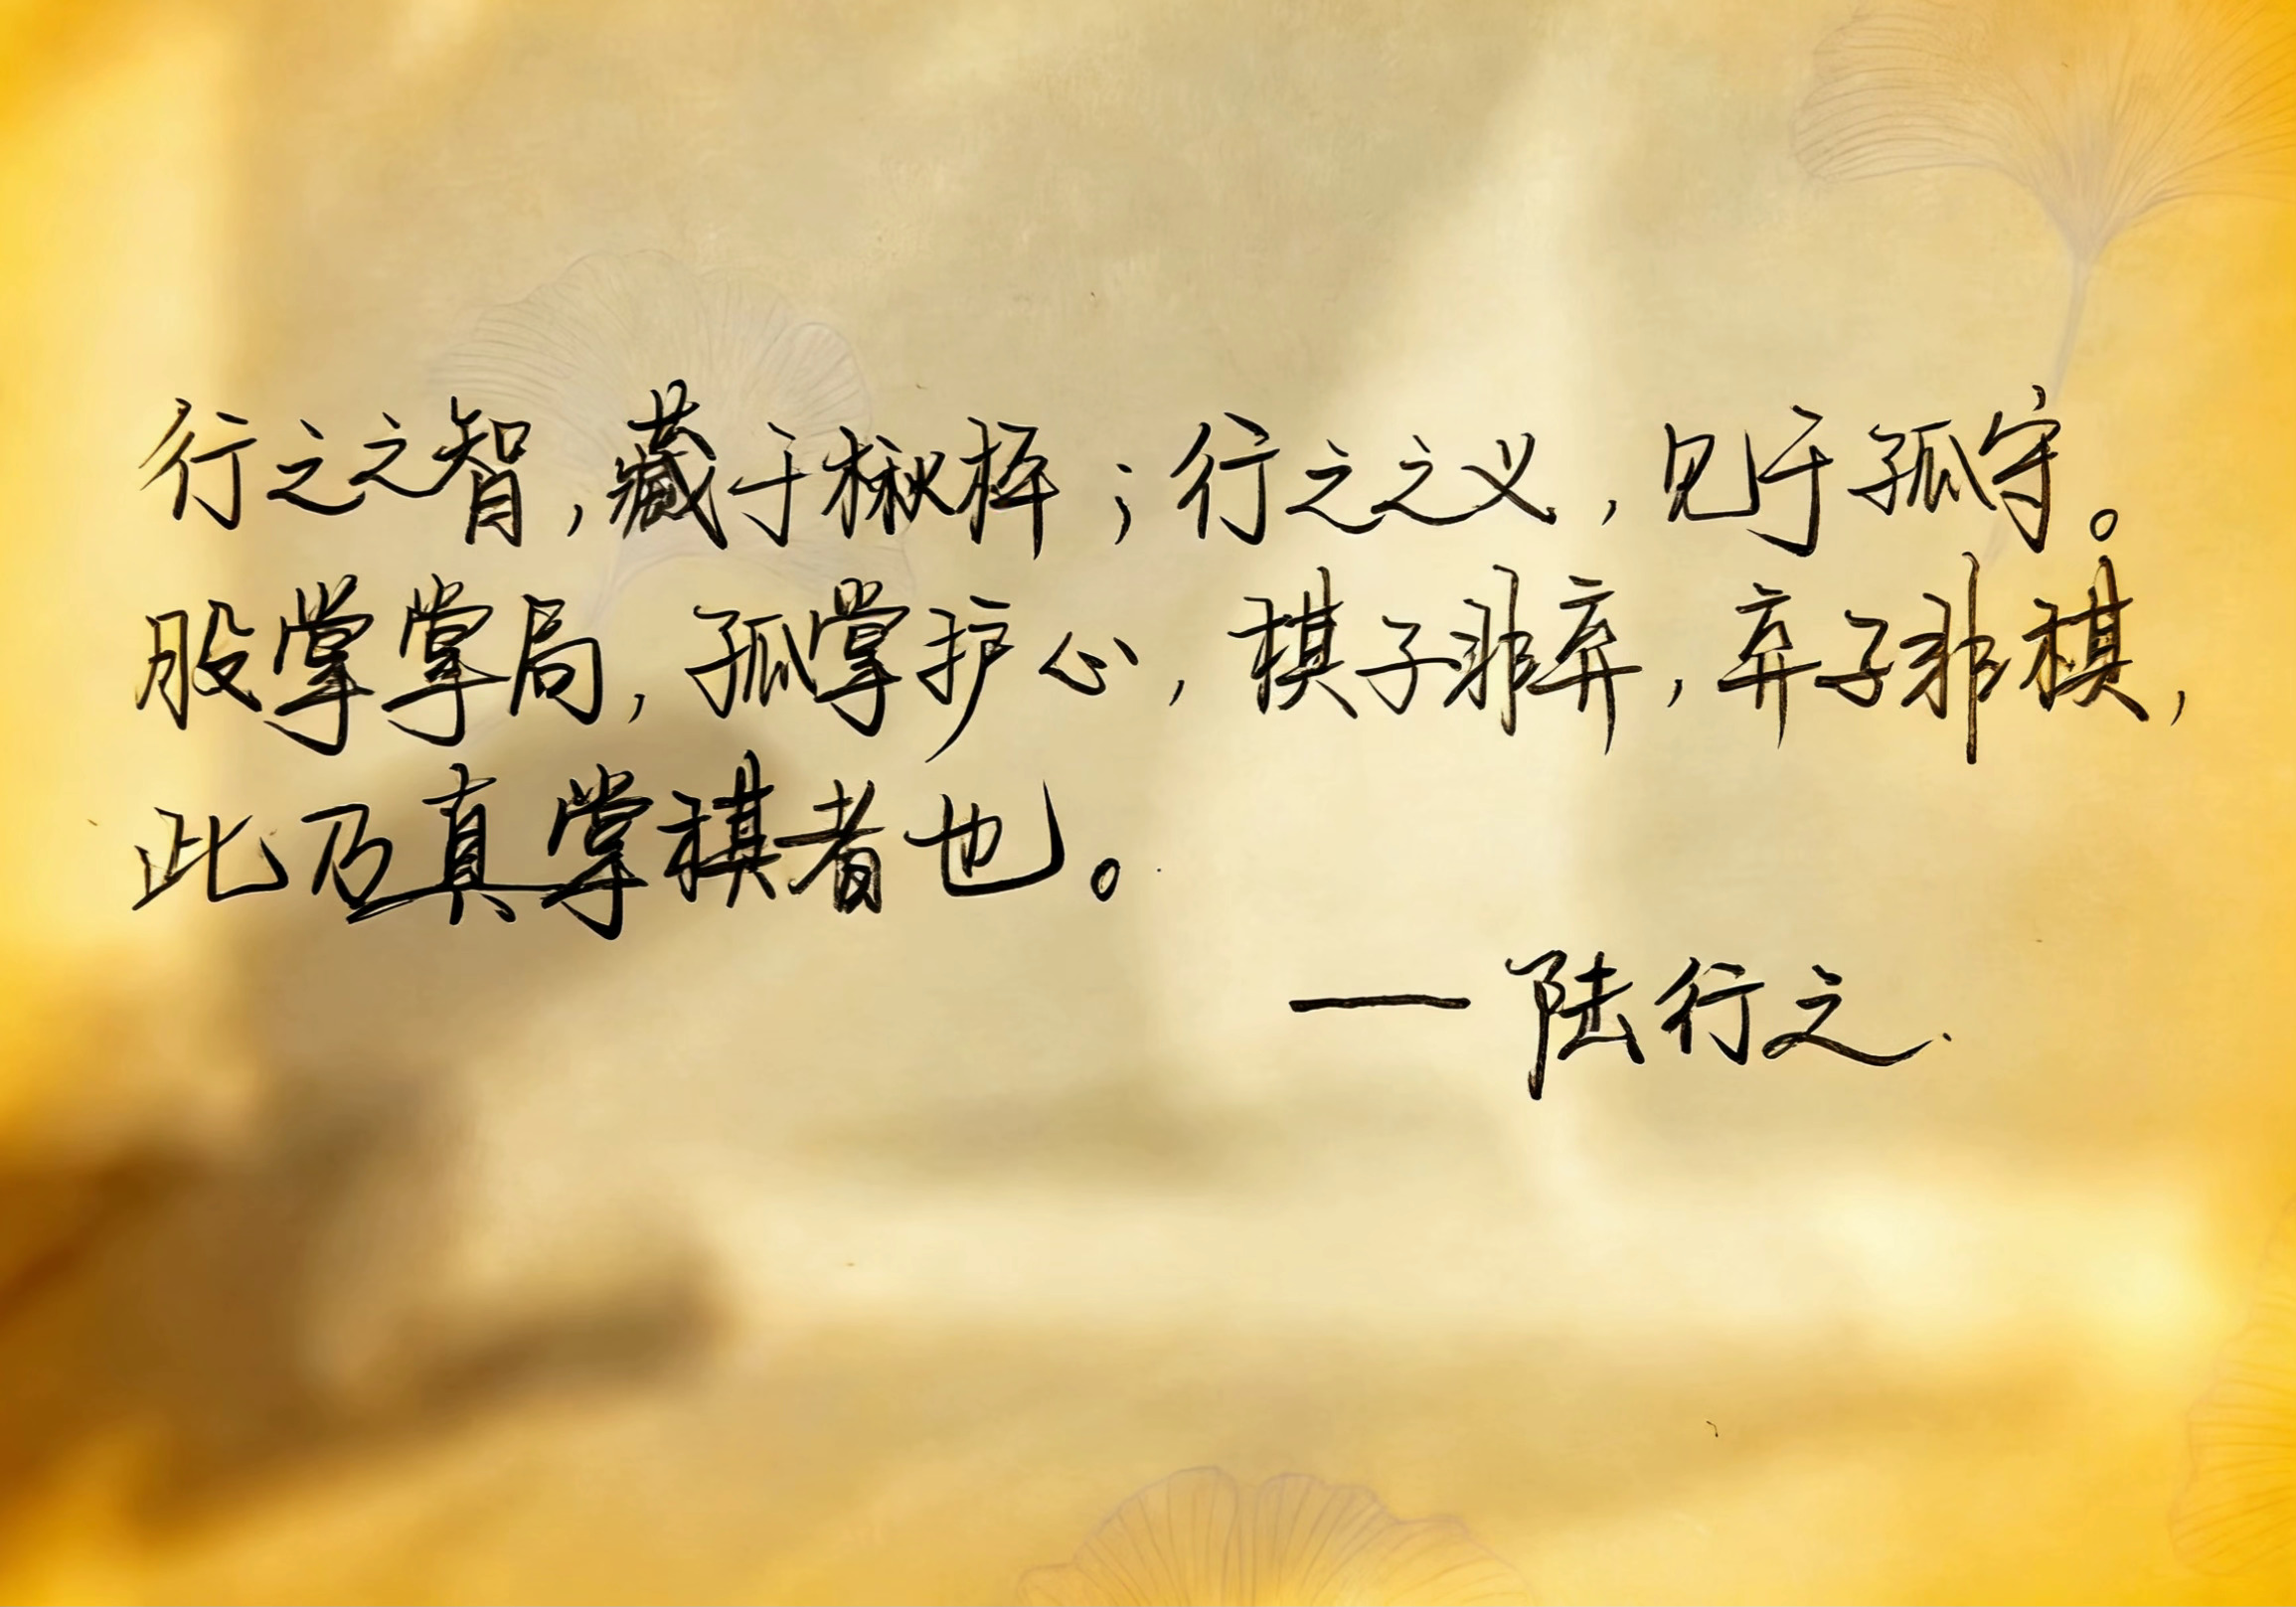 行之之智，藏于楸枰；行之之义，见于孤守。
股掌掌局，孤掌护心，棋子非弃，弃子非棋，
此乃真掌棋者也。
—陆行之